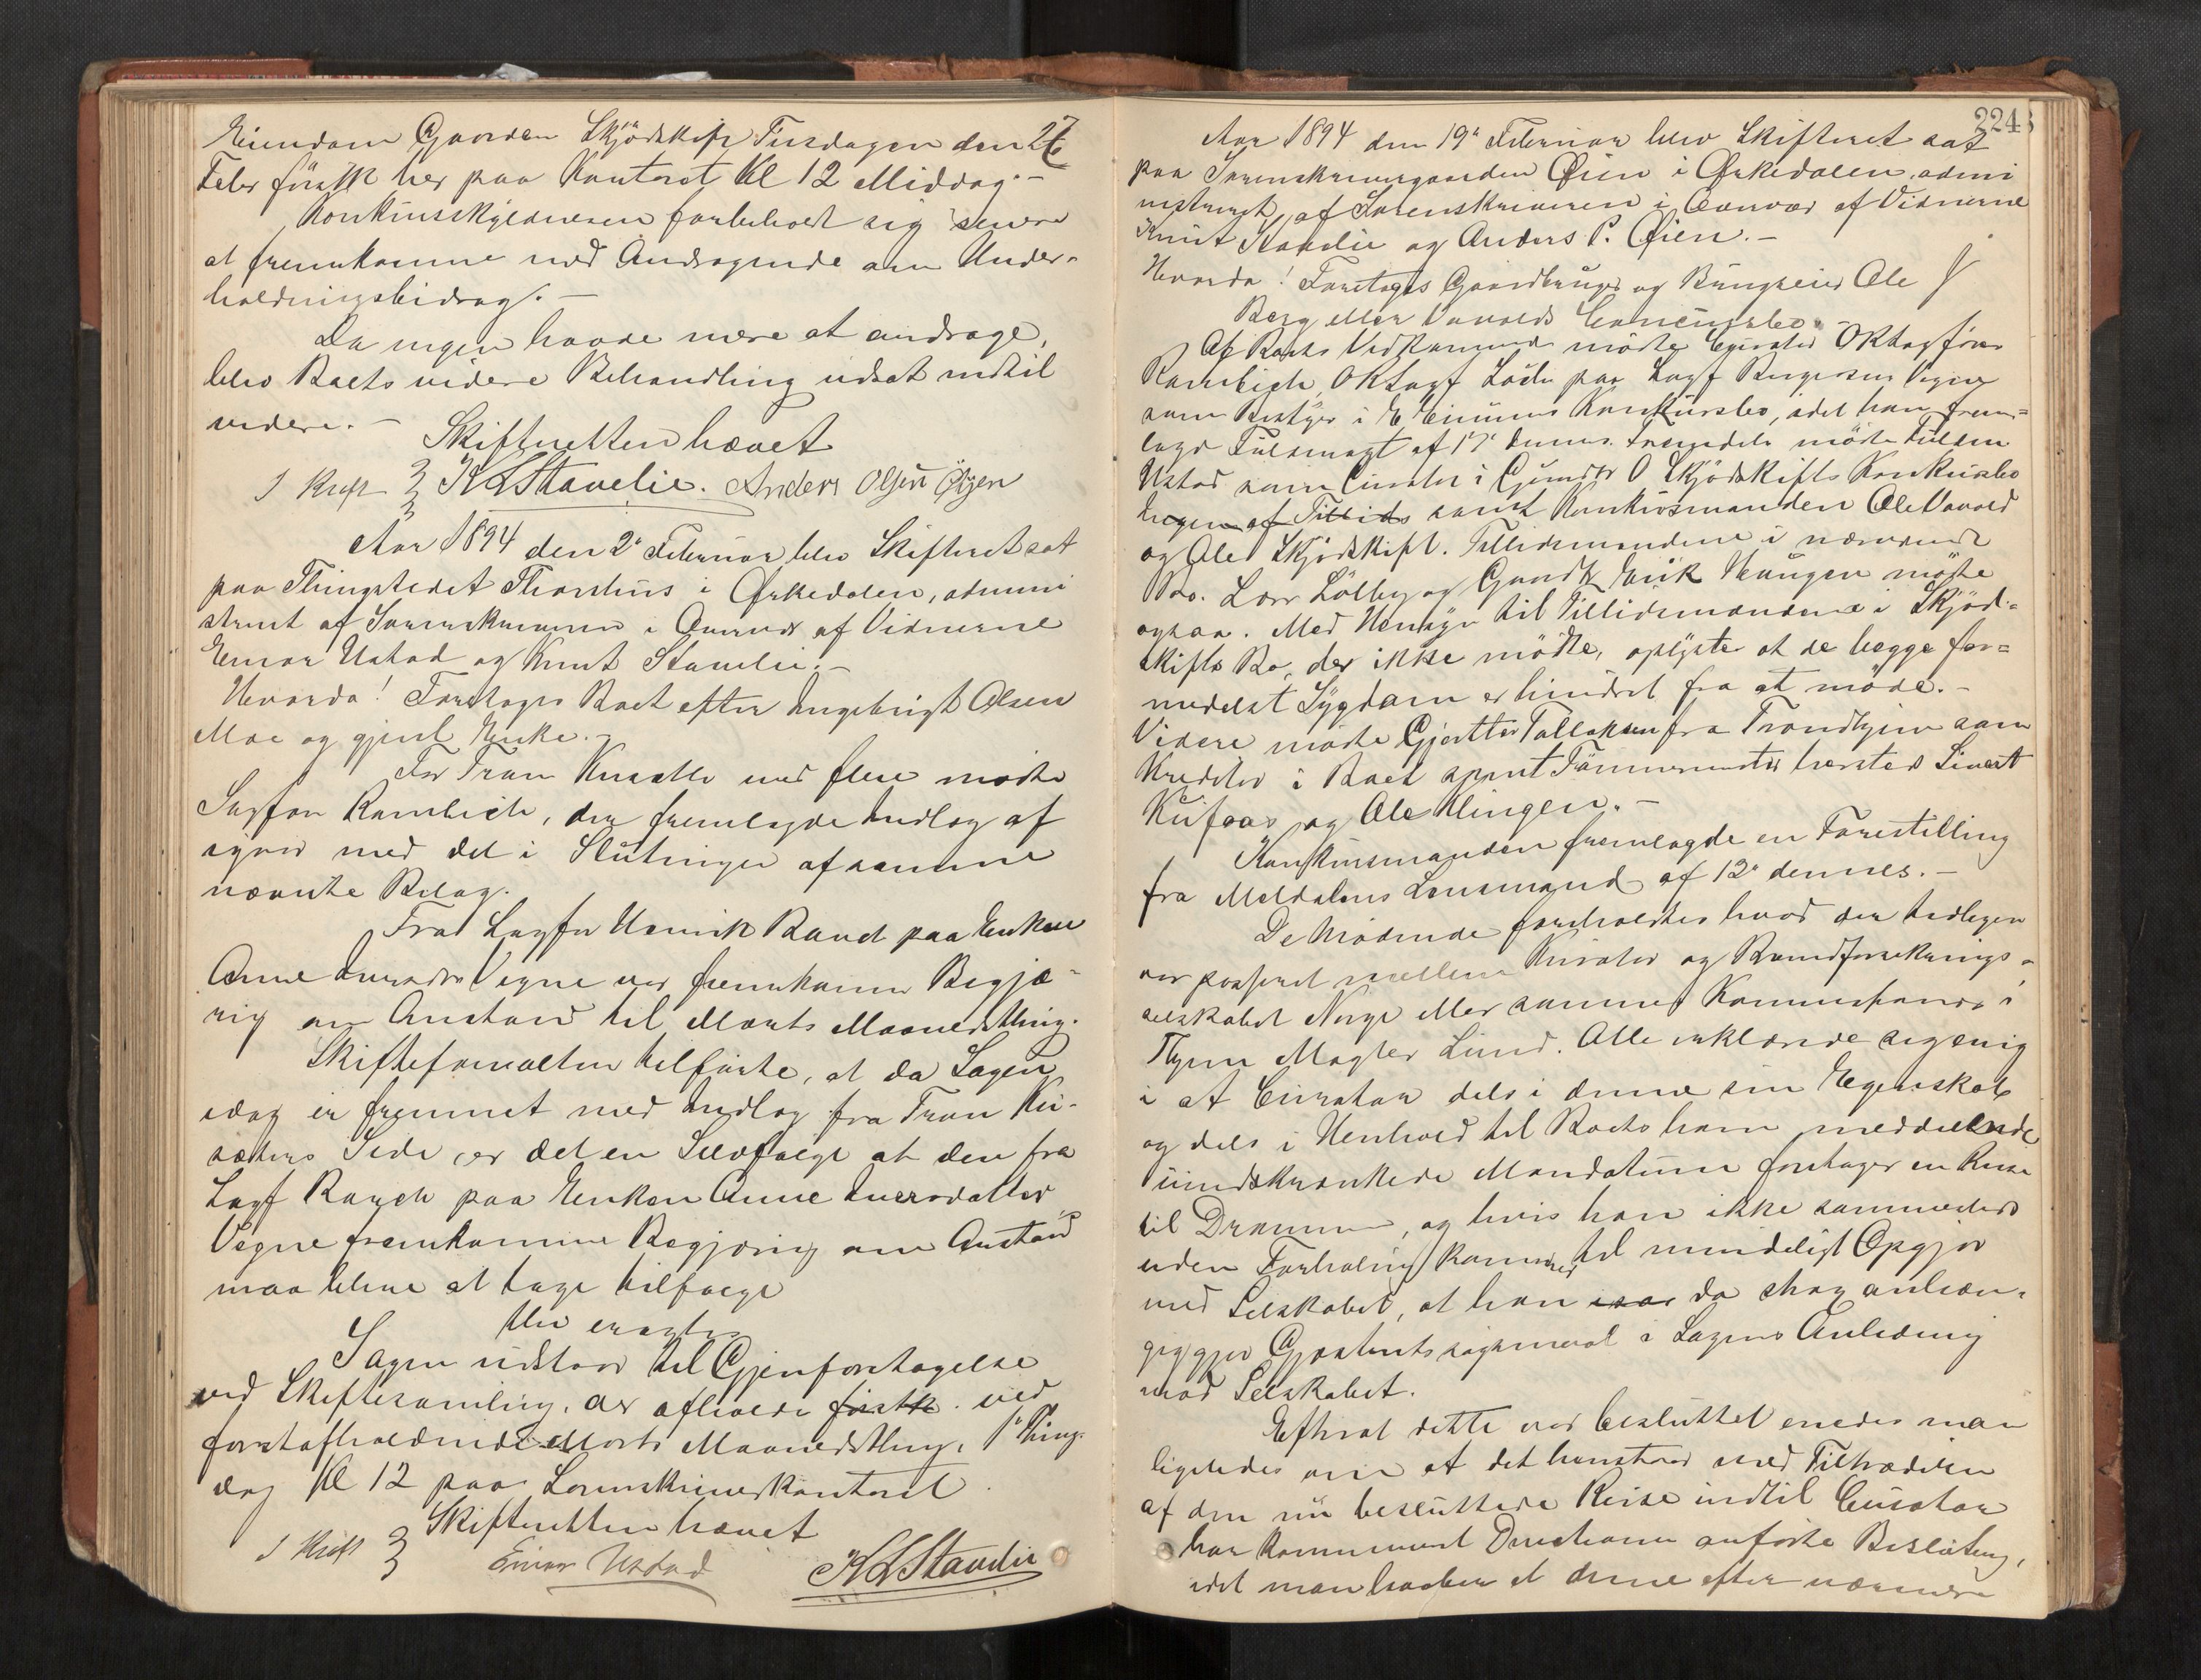 Eiendom Gaarden Skjødskift Tirsdagen den 27
Febr førstk her paa Kontoret Kl 12 Middag. –
Konkursskyldneren forbeholdt sig senere
at fremkomme med Andragende om Under-
holdningsbidrag. –
Da ingen havde mere at andrage,
blev Boets videre Behandling udsat indtil
videre. –
Skifteretten hævet
K L Stavelie. Anders Olsen Øyen
Aar 1894 den 2' Februar blev Skifteret sat
paa Thingstedet Thorshus i Ørkedalen, admini
streret af Sorenskriveren i Overvær af Vidnerne
Einar Ustad og Knut Stavelie. –
Hvorda! Foretoges Boet efter Ingebrigt Olsen
Moe og gjenl Enke. –
For Tron Kusætter med flere mødte
Sagfør Rambech, der fremlagde Indlæg af
igaar med det i Slutningen af samme
nævnte Bilag.
Fra Sagfør Henrik Rauch paa Enken
Anne Iversdtr Vegne var fremkommen Begjæ-
ring om Anstand til Marts Maanedsthing.
Skifteforvalteren tilførte, at da Sagen
idag er fremmet med Indlæg fra Tron Ku-
sæters Side, er det en Selvfølge at den fra
Sagf Rauch paa Enken Anne Iversdatter
Vegne fremkomne Begjæring om Anstand
maa blive at tage tilfølge
Blev eragtet
Sagen udstaar til Gjenforetagelse
ved Skiftesamling, der afholdes førstk. ved
førstafholdende Marts Maanedsthing, 1' Thing-
dag Kl 12 paa Sorenskriverkontoret.
Skifteretten hævet
Einar Ustad K L Stavelie
224
Aar 1894 den 19' Februar blev Skifteret sat
paa Sorenskrivergaarden Øien i Ørkedalen, admi
nistreret af Sorenskriveren i Overvær af Vidnerne
Knut Stavelie og Anders P. Øien. –
Hvorda! Foretoges Gaardbruger og Brugseier Ole J
Berg eller Vavolds Concursbo. –
Af Boets Vedkommende mødte Curator Oktagfører
Rambech, Oksagf Lødde paa Sagf Birgersens Vegne
som Bestyrer i E Eimums Konkursbo, idet han frem-
lagde Fuldmagt af 17' dennes. Fremdeles mødte Fuldm
Ustad som Curator i Gunder O Skjødskifts Konkursbo
Ingen af Tillids samt Konkursmanden Ole Vavold
og Ole Skjødskift. Tillidsmændene i nærværende
Bo. Lars Lølby og Gaardb Erik Haugen mødte
ogsaa. Med Hensyn til Tillidsmændene i Skjød-
skifts Bo, der ikke mødte, oplystes at de begge for-
medelst Sygdom er hindret fra at møde. –
Videre mødte Gjertter Tollaksen fra Trondhjem som
Kreditor i Boet samt Tømmermester Sivert
Kufaas og Ole Klingen. –
Konkursmanden fremlagde en Forestilling
fra Meldalens Lensmand af 12' dennes. –
De Mødende foreholdtes hvad der tidligere
var passeret mellem Kurator og Brandforsikrings-
selskabet Norge eller sammes Kommissionær i
Thjem Mægler Lund. Alle erklærede sig enig
i at Curator dels i denne sin Egenskab
og dels i Henhold til Boets ham meddelende
uindskrænkede Mandatum foretager en Reise
til Drammen, og hvis han ikke sammesteds
uden Forhaling kommer til mindeligt Opgjør
med Selskabet, at han saa da strax anlæn-
giggjør Gjæsteretssøgsmaal i Sagens Anledning
mod Selskabet.
Efterat dette var besluttet enedes man
ligeledes om at det henstaar med Tiltrædelsen
af den nu besluttede Reise indtil Curator
har kommuneret Direktionen anførte Beslutning,
idet man haaber at denne efter nærmere